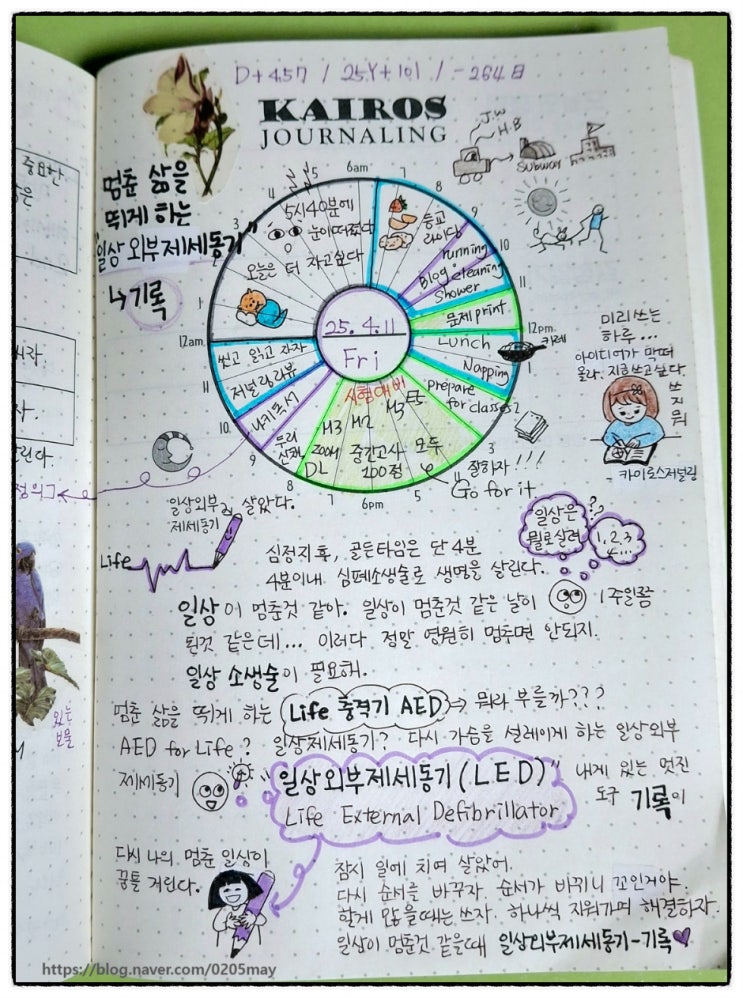 D+457 / 25Y+101 / -264日
KAIROS
JOURNALING
멈춘 삶을
뛰게 하는
"일상 외부제세동기"
↳ 기록
J.W
H.B
Subway
6am
7
8
9
10
11
12pm
2
3
4
6pm
7
8
9
10
11
12am
1
3
4
5
5시40분에
눈이떠졌다
오늘은 더 자고싶다
등교
라이딩
running
Blog cleaning
Shower
문제print
Lunch
카레
Napping
prepare
for classes
시험대비
M3 M2 M3 E5
ZOOM 중간고사 모두
DL 100점
잘하자!!!
Go for it
무리
산책
나키독서
저널링리뷰
씻고 읽고 자자
25.4.11
Fri
미리쓰는
하루...
아이디어가 막 떠
올라. 지금쓰고싶다.
쓰
지
뭐
- 카이로스저널링
일상외부
제세동기
살았다.
Life
일상은
뭘로살려
??
1,2,3
4...
심정지후, 골든타임은 단 4분
4분이내 심폐소생술로 생명을 살린다.
일상이 멈춘것 같아. 일상이 멈춘것 같은 날이 1주일쯤
된것 같은데... 이러다 정말 영원히 멈추면 안되지.
일상 소생술이 필요해.
멈춘 삶을 뛰게 하는 Life 충격기 AED ⇒ 뭐라 부를까???
AED for Life? 일상제세동기? 다시 가슴을 설레이게 하는 일상외부
제세동기
"일상외부제세동기(LED)"
Life External Defibrillator
내게 있는 멋진
도구 기록이
다시 나의 멈춘 일상이
꿈틀 거린다.
잠시 일에 치여 살았어.
다시 순서를 바꾸자. 순서가 바뀌니 꼬인거야.
할게 많을때는 쓰자. 하나씩 지워가며 해결하자.
일상이 멈춘것 같을때 일상외부제세동기-기록
중요한
있는
보물
https://blog.naver.com/0205may